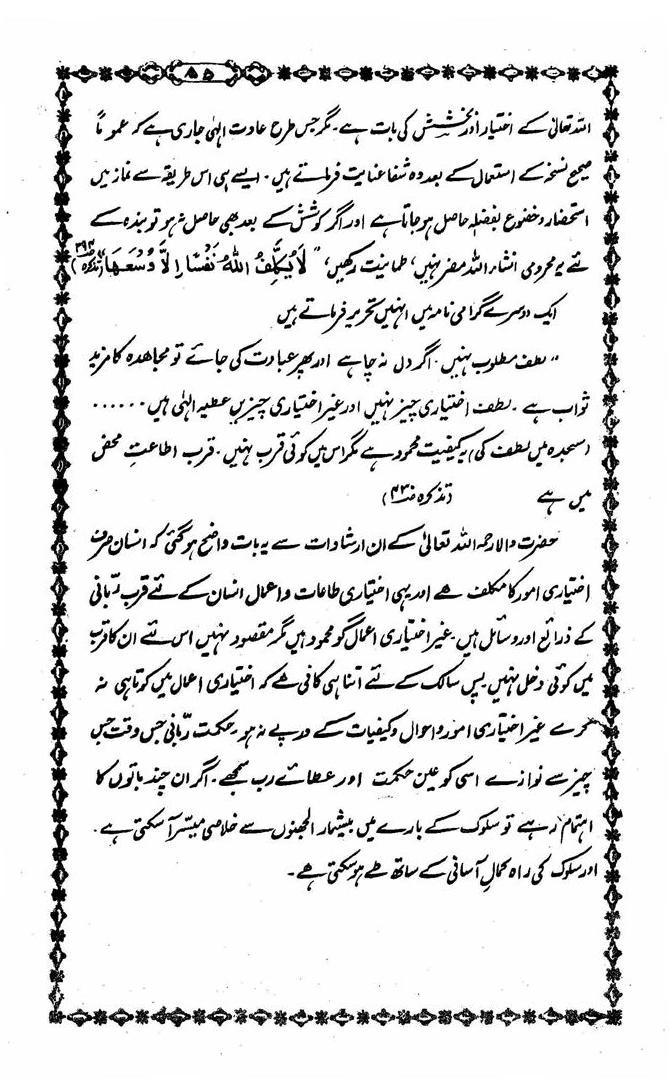 ۸۵
اللہ تعالیٰ کے اختیار اور بخشش کی بات ہے۔ مگر جس طرح عادت الٰہی جاری ہے کہ عموماً
صحیح نسخہ کے استعمال کے بعد وہ شفا عنایت فرماتے ہیں۔ ایسے ہی اس طریقہ سے نماز میں
استحضار و خضوع بفضلہٖ حاصل ہو جاتا ہے اور اگر کوشش کے بعد بھی حاصل نہ ہو تو بندہ کے
لئے یہ محرومی انشاء اللہ مضر نہیں، طمانیت رکھیں، " لَا یُکَلِّفُ اللّٰہُ نَفْسًا اِلَّا وُسْعَہَا (تذکرہ ص۲۹۳)
ایک دوسرے گرامی نامہ میں انہیں تحریر فرماتے ہیں
" لطف مطلوب نہیں۔ اگر دل نہ چاہے اور پھر عبادت کی جائے تو مجاھدہ کا مزید
ثواب ہے۔ لطف اختیاری چیز نہیں اور غیر اختیاری چیزیں عطیہ الٰہی ہیں۔ . . . . . .
(سجدہ میں لطف کی) یہ کیفیت محمود ہے مگر اس میں کوئی قرب نہیں۔ قرب اطاعتِ محض
میں ہے (تذکرہ ص۴۳۰)
حضرت والا رحمہ اللہ تعالیٰ کے ان ارشادات سے یہ بات واضح ہو گئی کہ انسان صرف
اختیاری امور کا مکلف ہے اور یہی اختیاری طاعات و اعمال انسان کے لئے قرب ربّانی
کے ذرائع اور وسائل ہیں۔ غیر اختیاری اعمال گو محمود ہیں مگر مقصود نہیں اس لئے ان کا قرب
میں کوئی دخل نہیں۔ پس سالک کے لئے اتنا ہی کافی ہے کہ اختیاری اعمال میں کوتاہی نہ
کرے غیر اختیاری امور و احوال و کیفیات کے درپے نہ ہو۔ حکمت ربّانی جس وقت جس
چیز سے نوازے اسی کو عین حکمت اور عطائے رب سمجھے۔ اگر ان چند باتوں کا
اہتمام رہے تو سلوک کے بارے میں بیشمار الجھنوں سے خلاصی میسّر آ سکتی ہے۔
اور سلوک کی راہ کمالِ آسانی کے ساتھ طے ہو سکتی ہے۔